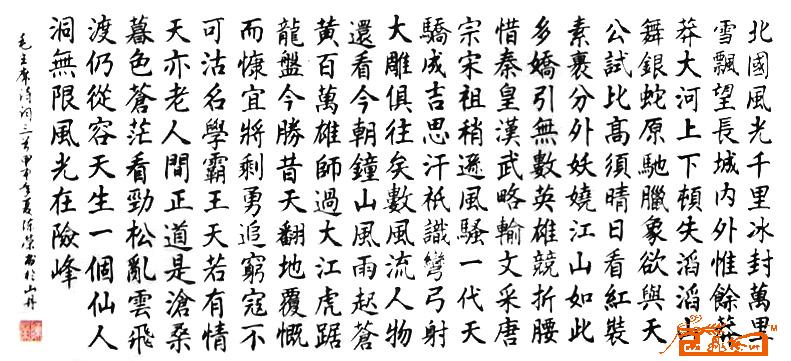 北國風光千里冰封萬里
雪飄望長城內外惟餘莽
莽大河上下頓失滔滔山
舞銀蛇原馳臘象欲與天
公試比高須晴日看紅裝
素裹分外妖嬈江山如此
多嬌引無數英雄競折腰
惜秦皇漢武略輸文采唐
宗宋祖稍遜風騷一代天
驕成吉思汗祇識彎弓射
大雕俱往矣數風流人物
還看今朝鐘山風雨起蒼
黃百萬雄師過大江虎踞
龍盤今勝昔天翻地覆慨
而慷宜將剩勇追窮寇不
可沽名學霸王天若有情
天亦老人間正道是滄桑
暮色蒼茫看勁松亂雲飛
渡仍從容天生一個仙人
洞無限風光在險峰
毛主席诗词三首甲申年夏书於山丹